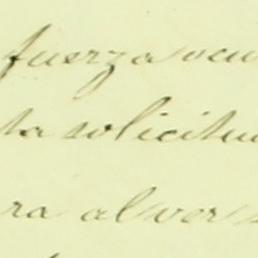 fuerza ocu
ta solicitu
ra al ver s